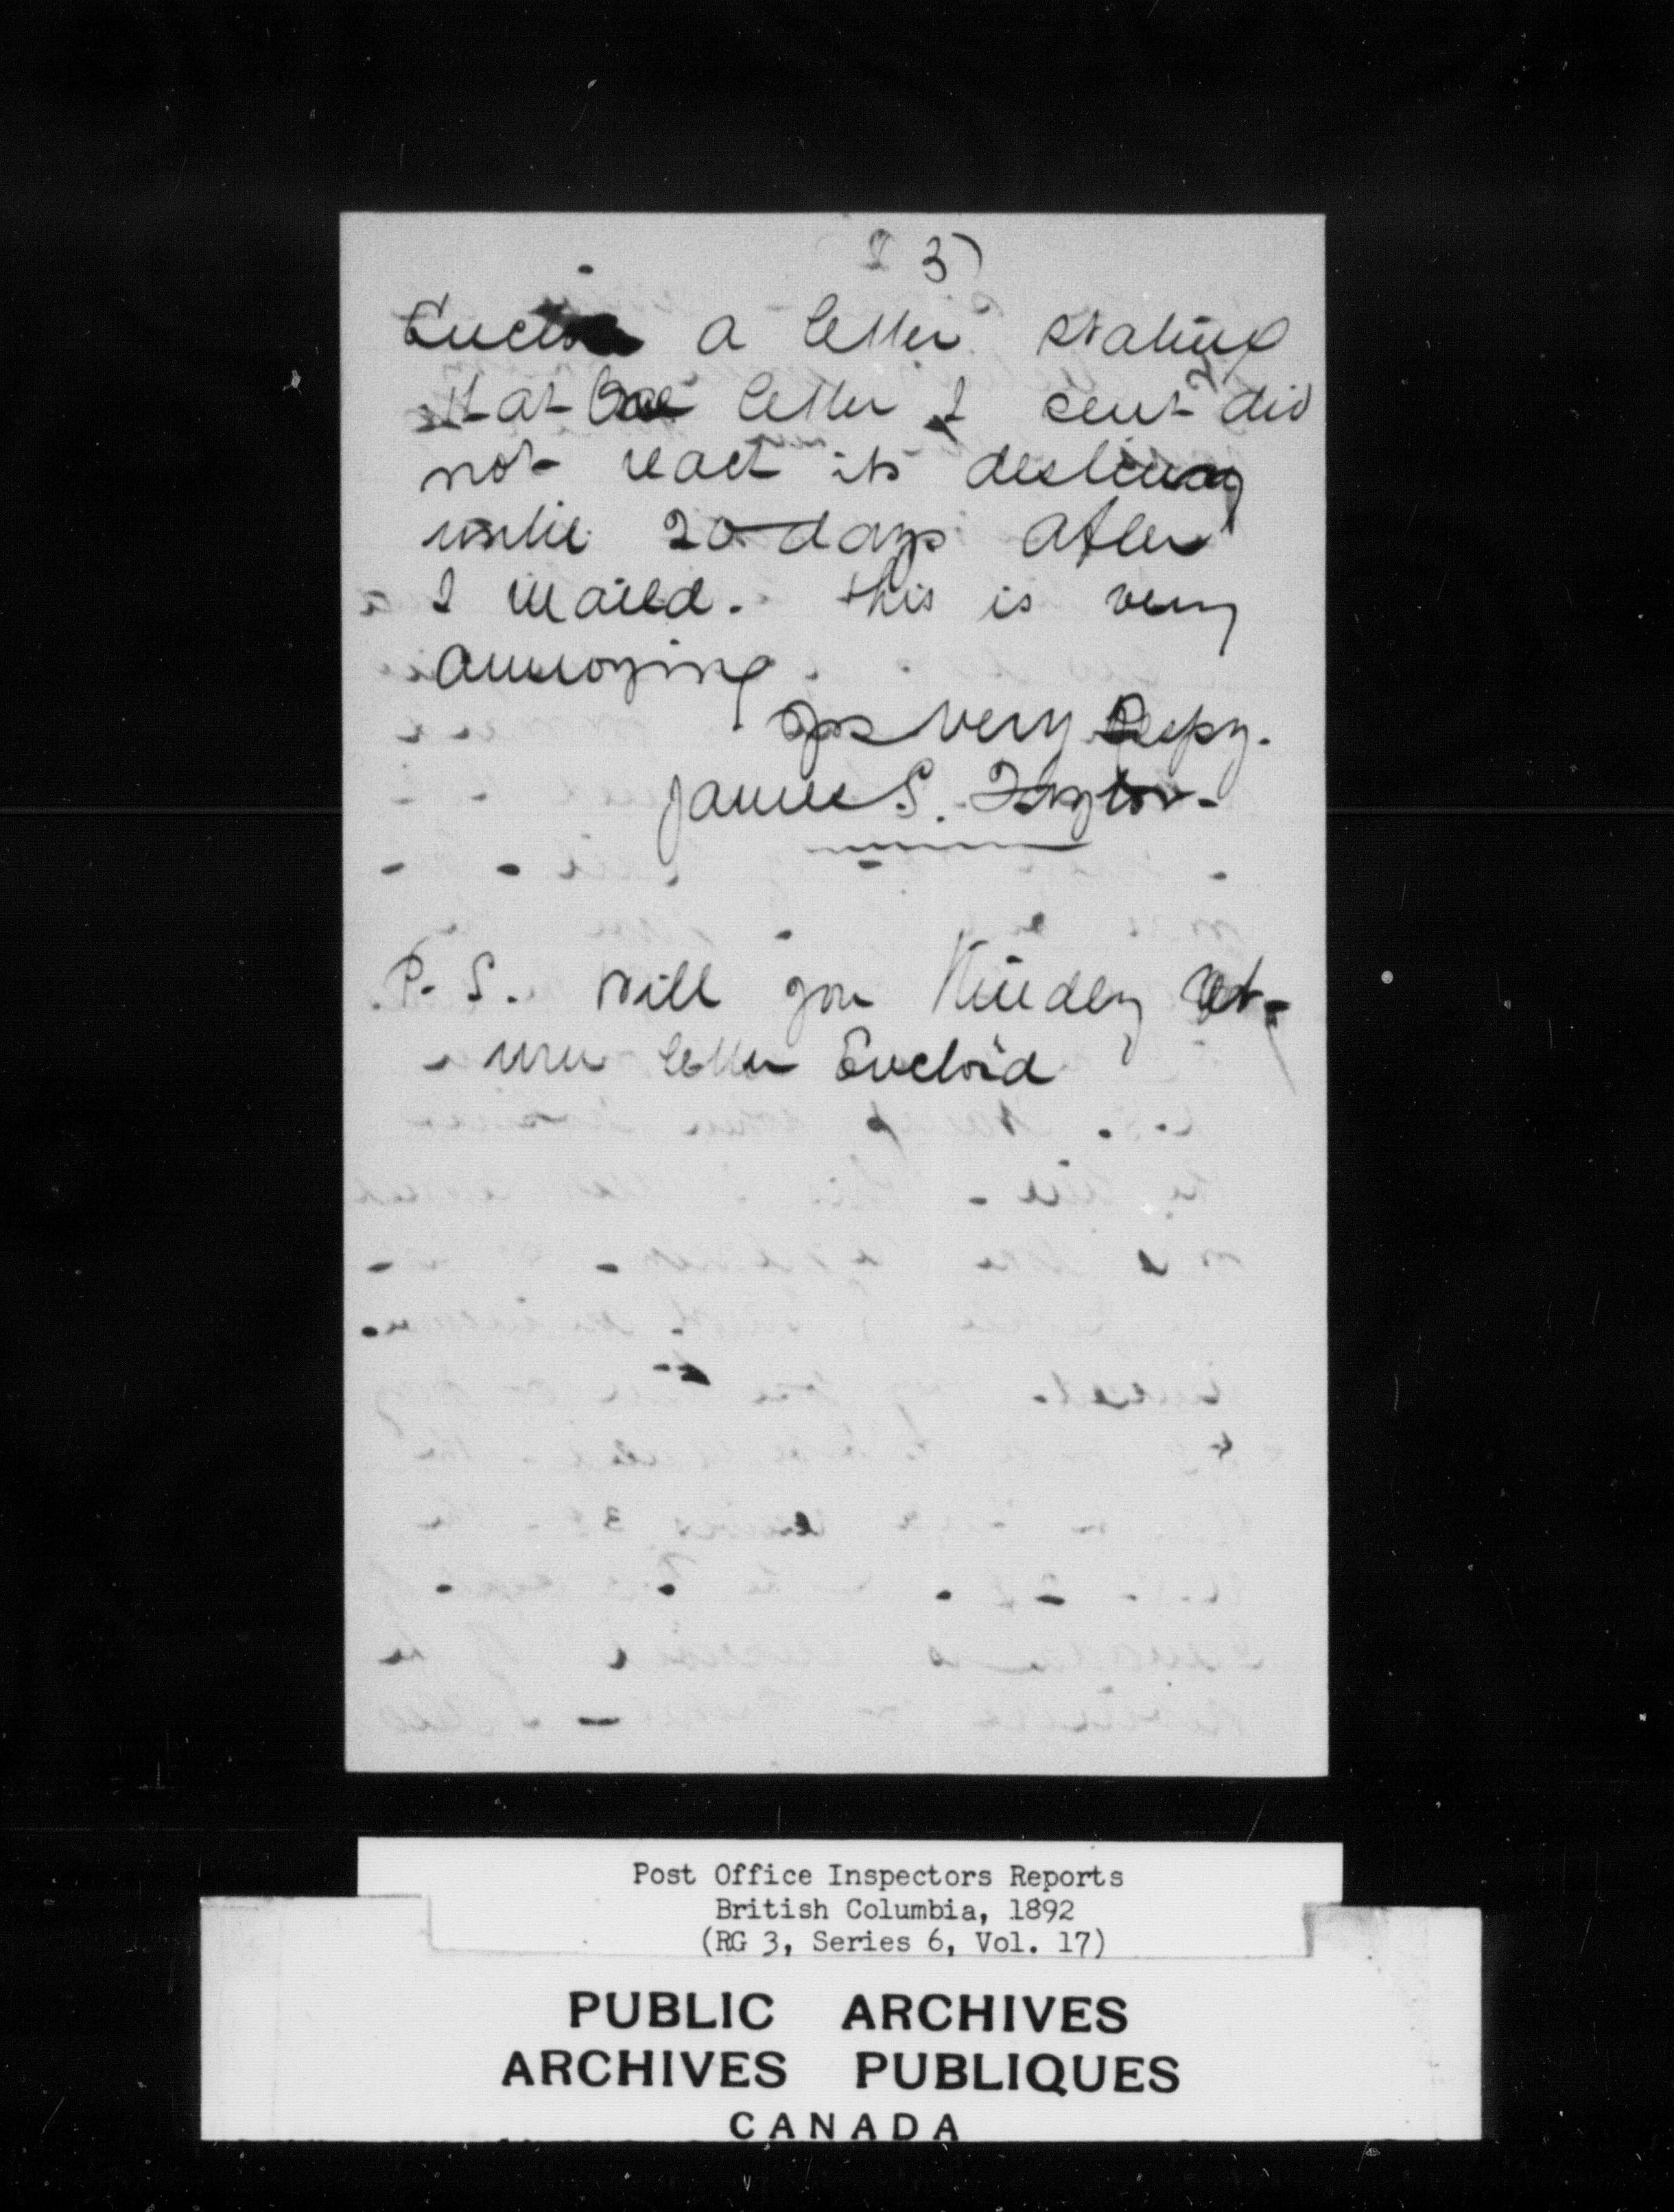 3)
Enclose a letter stating
that one letter I sent did
not reach its destiny
until 20 days after
I maild. this is very
annoying
Yrs very Respy.
James S. Taylor.
P. S. Will you Kindly ret-
urn letter Encloid
Post Office Inspectors Reports
British Columbia, 1892
(RG 3, Series 6, Vol. 17)
PUBLIC ARCHIVES
ARCHIVES PUBLIQUES
CANADA